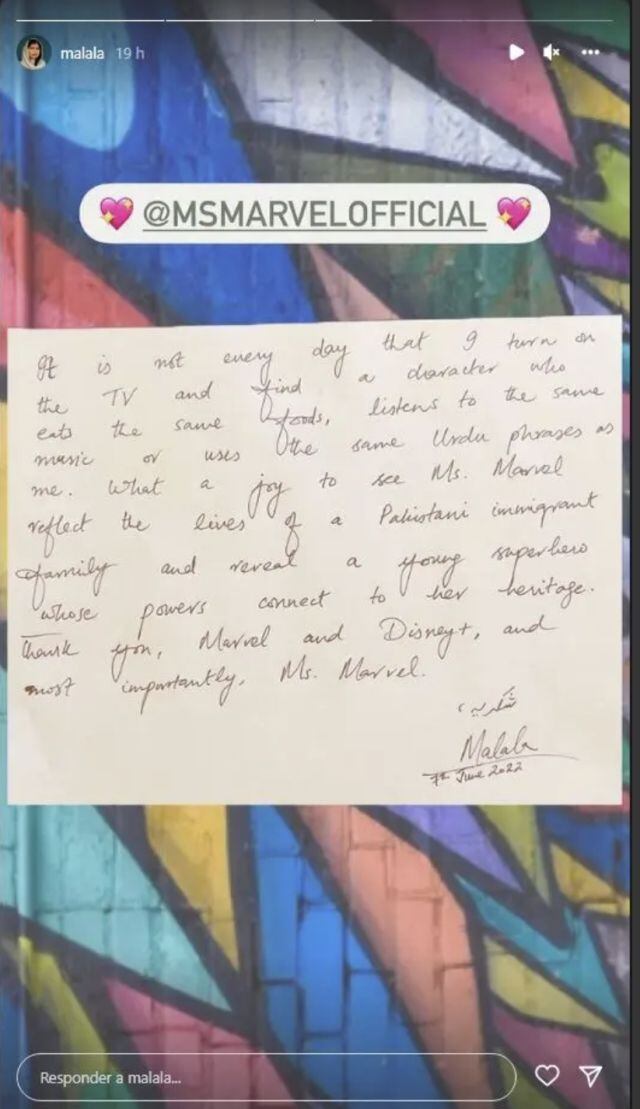 malala 19 h
@MSMARVELOFFICIAL
It is not every day that I turn on
the TV and find a character who
eats the same foods, listens to the same
music or uses the same Urdu phrases as
me. What a joy to see Ms. Marvel
reflect the lives of a Pakistani immigrant
family and reveal a young superhero
whose powers connect to her heritage.
Thank you, Marvel and Disney+, and
most importantly, Ms. Marvel.
شکریہ،
Malala
7th June 2022
Responder a malala...